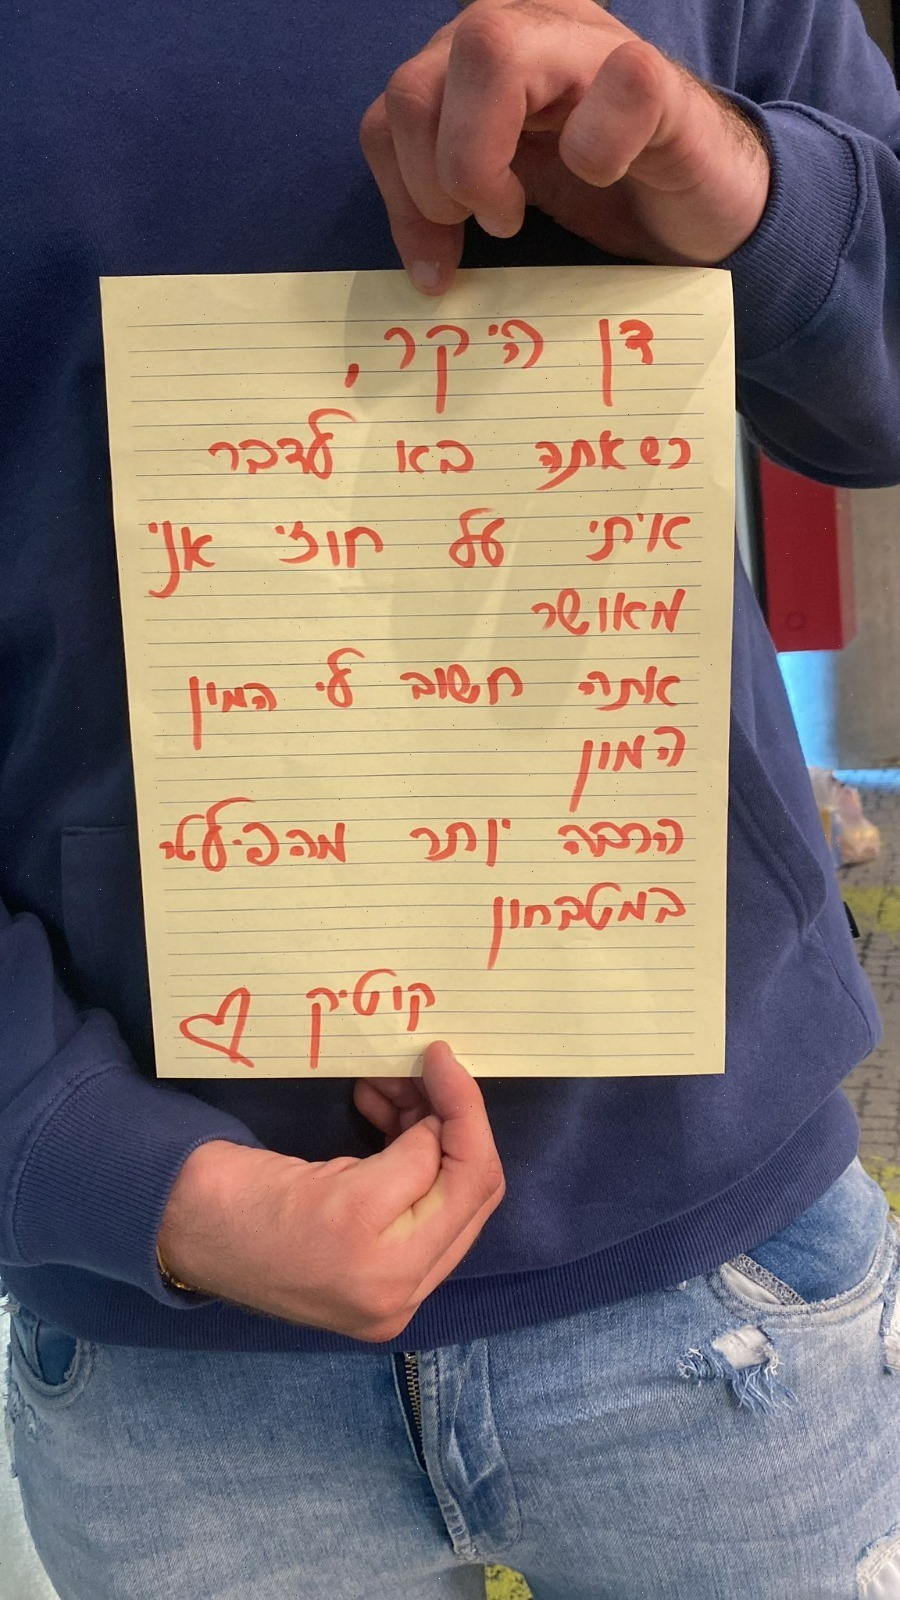 דן היקר,
כשאתה בא לדבר
איתי על חוזי אני
מאושר
אתה חשוב לי המון
המון
הרבה יותר מהפילטר
במטבחון
קוטיק